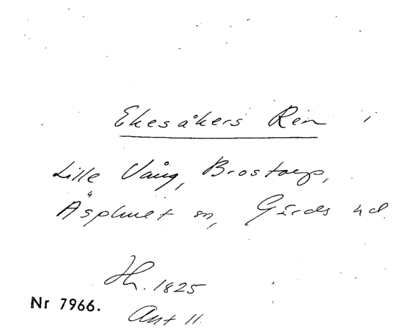 Ekesåkers Ren i
Lille Vång, Brostorp,
Äsphult sn, Gärds hd.
Hh. 1825
Akt 11.
Nr 7966.